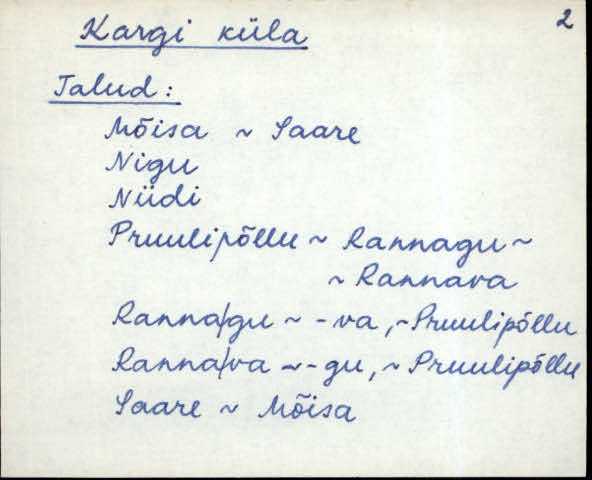 2
Kargi küla
Talud:
Mõisa ~ Saare
Nigu
Niidi
Pruulipõllu ~ Rannagu ~
~ Rannava
Ranna/gu ~ -va, ~ Pruulipõllu
Ranna/va ~ -gu, ~ Pruulipõllu
Saare ~ Mõisa